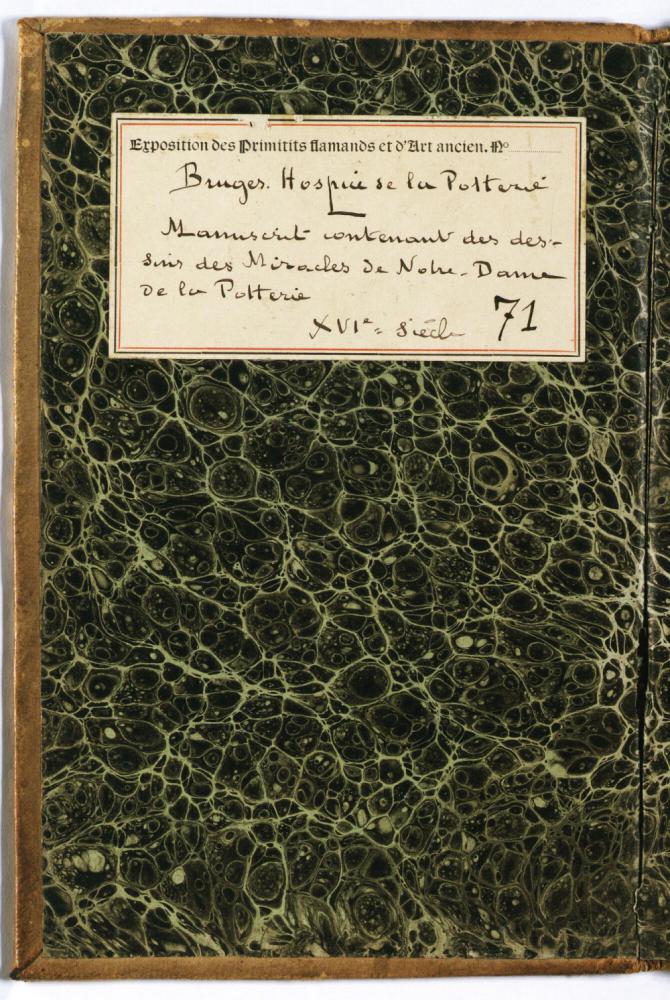 Exposition des Primitifs flamands et d'Art ancien. Nº
Bruges. Hospice de la Potterie
Manuscrit contenant des des-
sins des Miracles de Notre-Dame
de la Potterie
XVIe = siècle 71